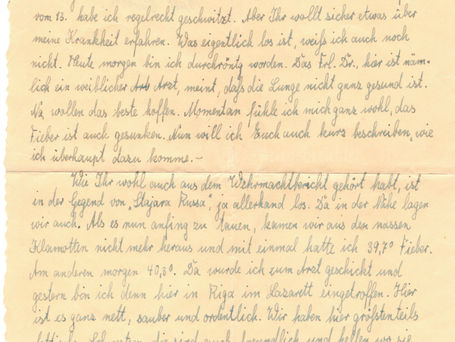 vom 13. habe ich regelrecht geschwitzt. Aber Ihr wollt sicher etwas über
meine Krankheit erfahren. Was eigentlich los ist, weiß ich auch noch
nicht. Heute morgen bin ich durchröntg worden. Das Frl. Dr., hier ist näm-
lich ein wiblicher Arzt, meint, daß die Lunge nicht ganz gesund ist.
Na, wollen das beste hoffen. Momentan fühle ich mich ganz wohl, das
Fieber ist auch gesunken. Nun will ich Euch auch kurz beschreiben, wie
ich überhaupt dazu komme.-
Wie Ihr wohl auch aus dem Wehrmachtbericht gehört habt, ist
in der Gegend von „Stajara Russa" ja allerhand los. Da in der Nähe lagen
wir auch. Als es nun anfing zu tauen, kamen wir aus den nassen
Klamotten nicht mehr heraus und mit einmal hatte ich 39,7° Fieber.
Am anderen morgen 40,3°. Da wurde ich zum Arzt geschickt und
gestern bin ich denn hier in Riga im Lazarett eingetroffen. Hier
ist es ganz nett, sauber und ordentlich. Wir haben hier größtenteils
die sind auch freundlich und helfen wo sie